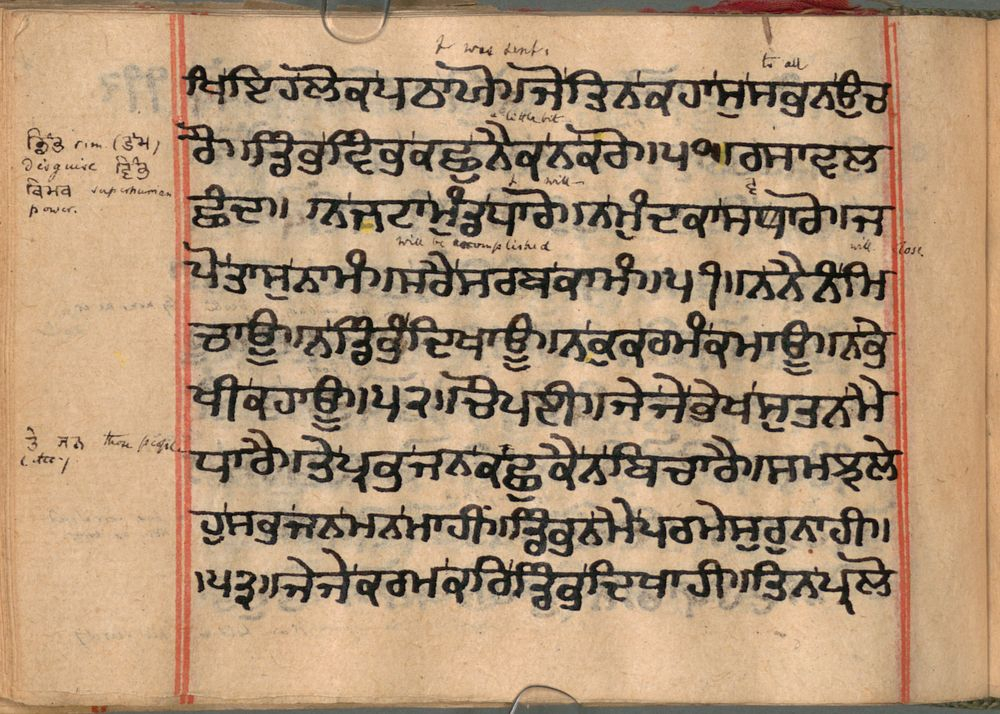 I was sent.
to all
ਖਿਇਹਲੋਕਪਠਾਯੋ॥ਜੋਤਿਨਕਹਾਸੁਸਭੁਨਉਚ
a little bit
ਰੌ॥ਡਿੰਭੁਵਿੰਭੁਕਛੁਨੈਕਨਕੋਰੋ॥੫੦॥ਰਸਾਵਲ
I will
ਛੰਦ॥ ਨਜਟਾਮੁੰਡਧਾਰੋ॥ਨਮੁੰਦਕਾਸਧਾਰੋ॥ਜ
will be accomplished
will close
ਪੋਤਾਸੁਨਾਮੰ॥ਸਰੈਸਰਬਕਾਮੰ॥੫੧॥ਨਨੈਨੰਮਿ
ਚਾਊਂ॥ਨਡਿੰਭੁੰਦਿਖਾਊਂ॥ਨਕੁਕਰਮੰਕਮਾਊਂ॥ਨਭੇ
ਖੀਕਹਾਊਂ॥੫੨॥ਚੌਪਈ॥ਜੇਜੇਭੇਖਸੁਤਨਮੇ
ਧਾਰੈ॥ਤੇਪ੍ਰਭੁਜਨਕਛੁਕੈਨਬਿਚਾਰੈ॥ਸਮਝਲੇ
ਹੁਸਭੁਜਨਮਨਮਾਹੀਂ॥ਡਿੰਭੁਨਮੇਪਰਮੇਸੁਰੁਨਾਹੀ॥
॥੫੩॥ਜੇਜੇਕਰਮਕਰਿਡਿੰਭੁਦਿਖਾਹੀ॥ਤਿਨਪ੍ਰਲੋ
disguise
superhuman
power.
ਤੇ ਜਨ those people